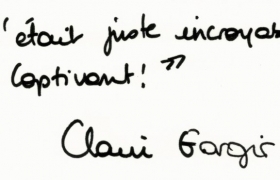 'était juste incroyab
Captivant! "
Claui Gargir